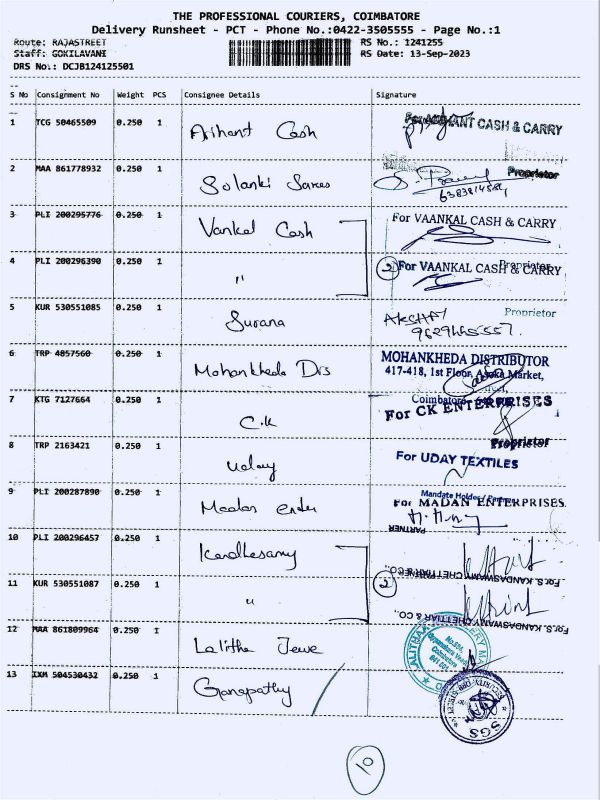 THE PROFESSIONAL COURIERS, COIMBATORE
Delivery Runsheet - PCT - Phone No.:0422-3505555 - Page No.:1
Route: RAJASTREET RS No.: 1241255
Staff: GOKILAVANI RS Date: 13-Sep-2023
DRS No.: DCJB124125501
S No Consignment No Weight PCS Consignee Details Signature
1 TCG 50465509 0.250 1 Arihant Cash For ARIHANT CASH & CARRY
Proprietor
2 MAA 861778932 0.250 1 Solanki Sarees
6383814581
3 PLI 200295776 0.250 1 Vankal Cash For VAANKAL CASH & CARRY
Proprietor
4 PLI 200296390 0.250 1 " 2 For VAANKAL CASH & CARRY
Proprietor
5 KUR 530551085 0.250 1 Surana AKSHAY
9629465557
6 TRP 4857560 0.250 1 Mohankheda Drs MOHANKHEDA DISTRIBUTOR
417-418, 1st Floor, Asoka Market,
Coimbatore
7 KTG 7127664 0.250 1 C.K For CK ENTERPRISES
Proprietor
8 TRP 2163421 0.250 1 Uday For UDAY TEXTILES
Mandate Holder /
9 PLI 200287890 0.250 1 Madan enter For MADAN ENTERPRISES
PARTNER
10 PLI 200296457 0.250 1 Kandhasamy
For S. KANDASWAMY CHETTIAR & CO.,
11 KUR 530551087 0.250 1 " 2
For S. KANDASWAMY CHETTIAR & CO.,
12 MAA 861809964 0.250 1 Lalitha Jewe
13 IXM 504530432 0.250 1 Ganapathy
SGS
10